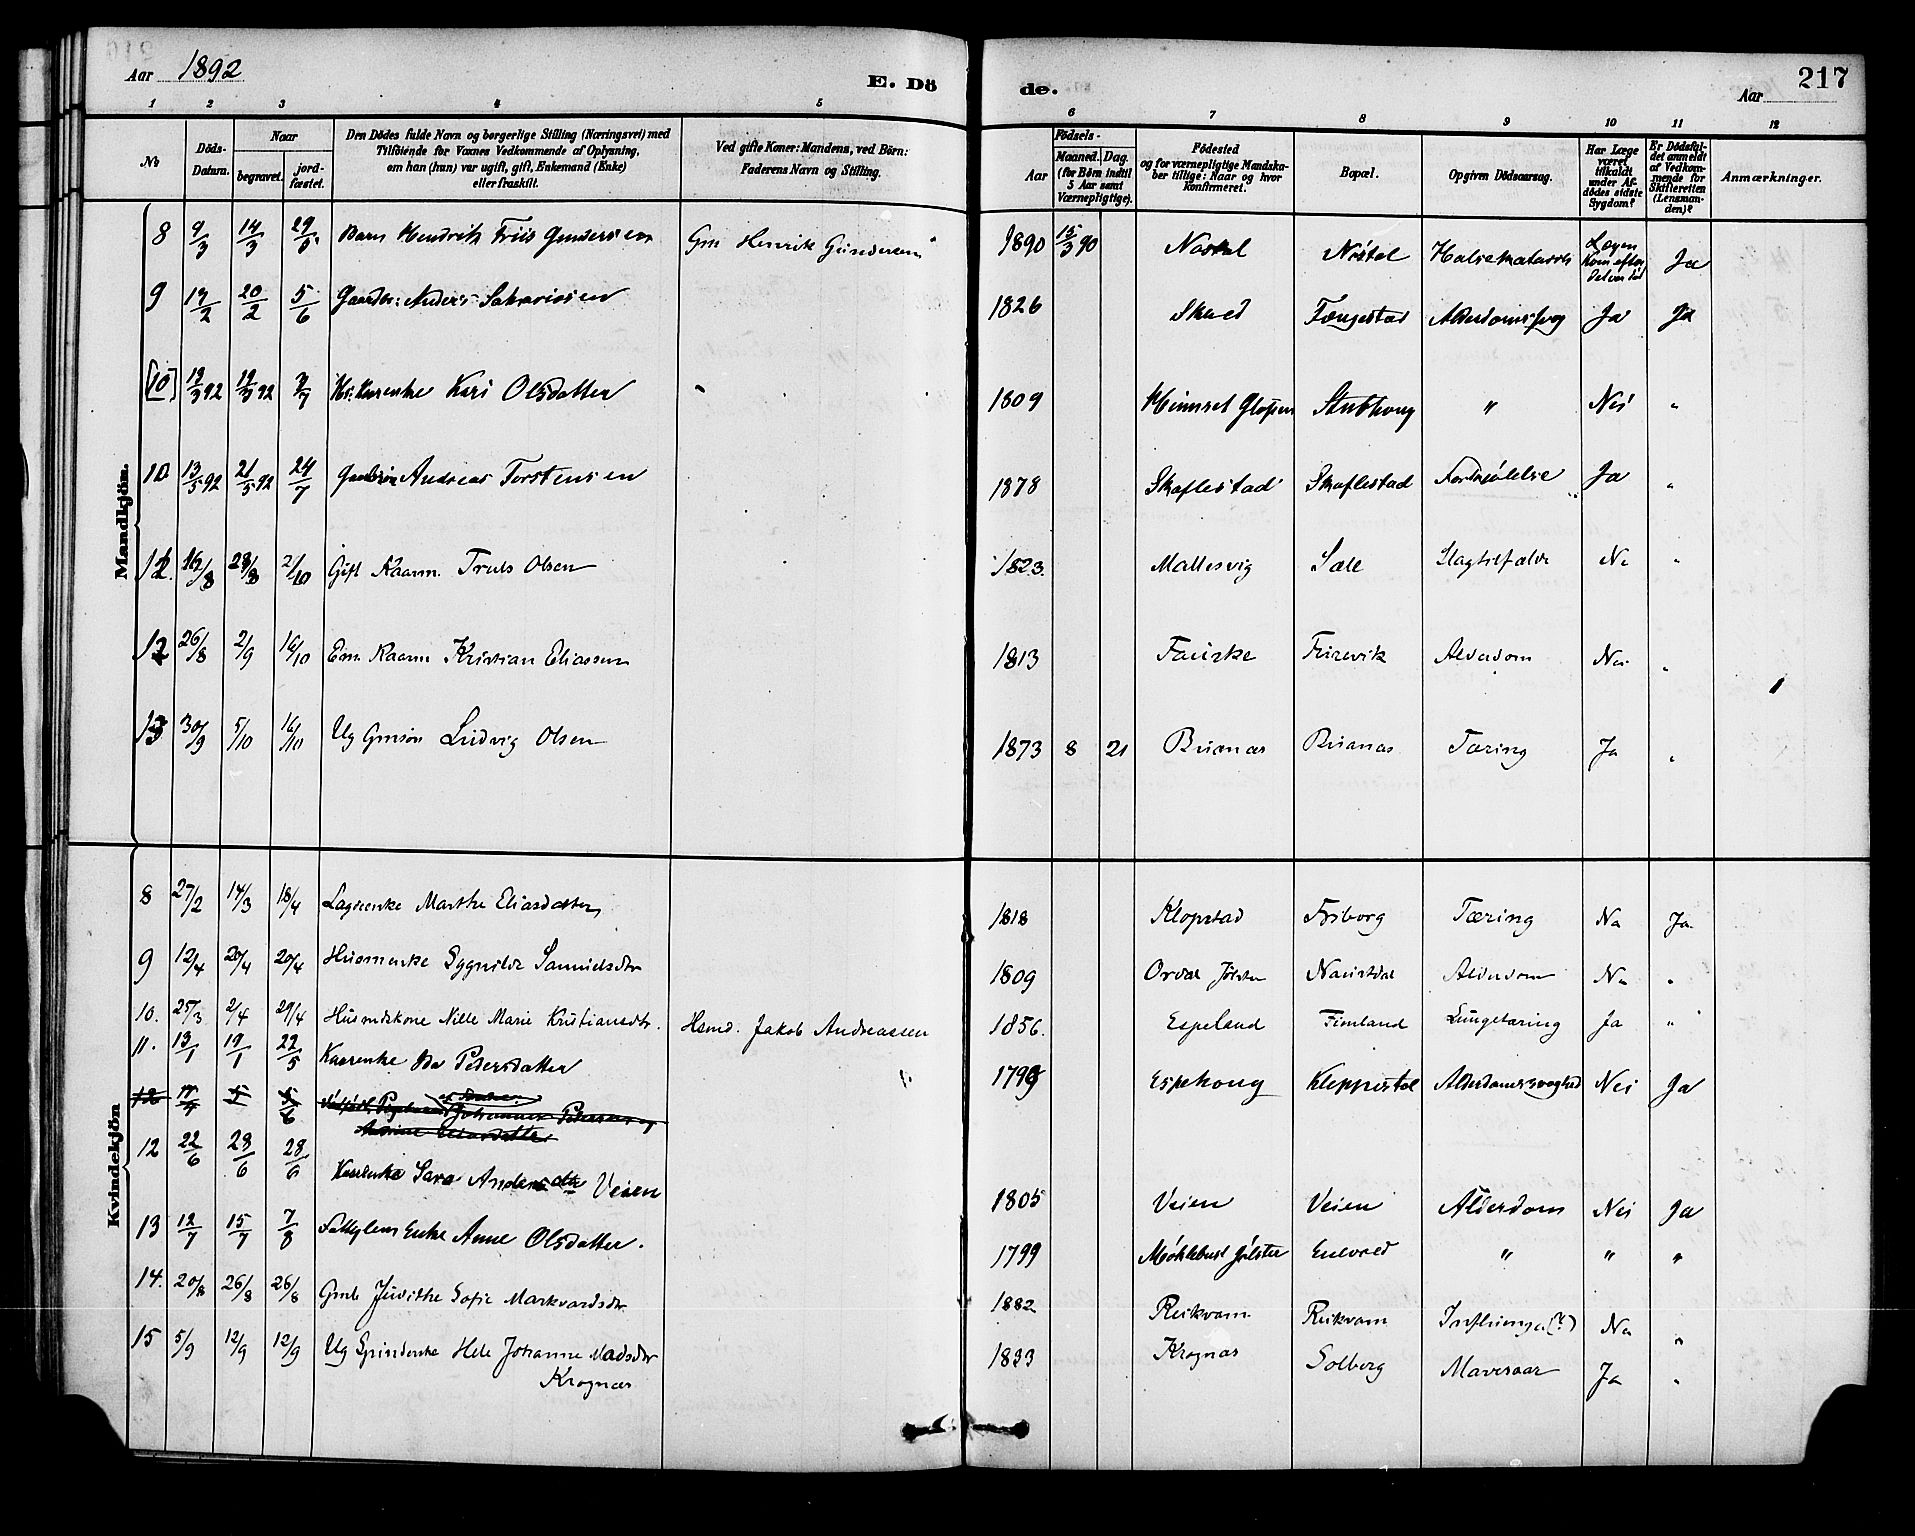 Aar 1892
E. Dö
de.
Aar
217
1 2 3 4 5 6 7 8 9 10 11 12
No
Döds-Datum.
Naar
begravet.
jord-fæstet.
Den Dödes fulde Navn og borgerlige Stilling (Næringsvei) med
Tilföiende for Voxnes Vedkommende af Oplysning,
om han (hun) var ugift, gift, Enkemand (Enke)
eller fraskilt.
Ved gifte Koner: Mandens, ved Börn:
Faderens Navn og Stilling.
Födsels-
Aar
Maaned. Dag.
(for Börn indtil
5 Aar samt
Værnepligtige).
Födested
og for værnepligtige Mandska-
ber tillige: Naar og hvor
konfirmeret.
Bopæl.
Opgiven Dödsaarsag.
Har Læge
været
tilkaldt
under Af-
dödes sidste
Sygdom?
Er Dödsfal-
det anmeldt
af Vedkom-
mende for
Skifteretten
(Lensman-
den)?
Anmærkninger.
Mandkjön.
8 9/3 14/3 Barn Hendrik Friis Gundersen Gm Henrik Gundersen 1890 15/3 90 Nøstal Nøstal Lægen kom efter det var død Ja
9 14/2 20/2 5/6 Anders Sakariasen 1826 Skred Fængestad Ja Ja
[10] 12/3 92 19/3 92 Kari Olsdatter 1809 Stubhoug " Nei "
10 13/5 92 21/5 92 24/7 Andreas Torstensen 1878 Skaflestad Skaflestad Forkjølelse Ja "
11. 16/8 28/8 2/10 Gift Kaarm. Truls Olsen 1823. Mallesvig Sæle Slagtilfælde Nei "
12 26/8 2/9 16/10 Em. Kaarm Kristian Eliassen 1813 Fauske Furevik Alderdom Nei "
13 30/9 5/10 16/10 Ug Gmsøn Ludvig Olsen 1873 8 21 Buenæs Buenæs Tæring Ja "
Kvindekjön
8 27/2 14/3 18/4 Lægdenke Marthe Eliasdatter 1818 Klopstad Friborg Tæring Nei Ja
9 12/4 20/4 20/4 Husmenke Sygnilde Samuelsdtr 1809 Ordal Jølster Naustdal Alderdom Nei "
10. 25/3 2/4 29/4 Husmdskone Nille Marie Kristiansdtr. Hsmd. Jakob Andreassen 1856. Espeland Fimland Lungetæring Ja "
11. 13/1 19/1 22/5 Kaarenke Ida Pedersdatter Espehoug Kleppestøl Nei Ja
12 Johannes
12 22/6 28/6 28/6 Kaarenke Sara Andersdtr Veien 1805 Veien Veien Alderdom Nei Ja
13 12/7 15/7 7/8 Enke Anne Olsdatter. 1799 Møklebust Jølster " " "
14. 20/8 26/8 26/8 Judithe Sofie Markvardsdtr 1882 Reikvam Reikvam Influenza (?) Nei "
15 5/9 12/9 12/9 Ug Johanne Madsdtr
Krognæs 1833 Krognæs Solberg Mavesaar Ja "